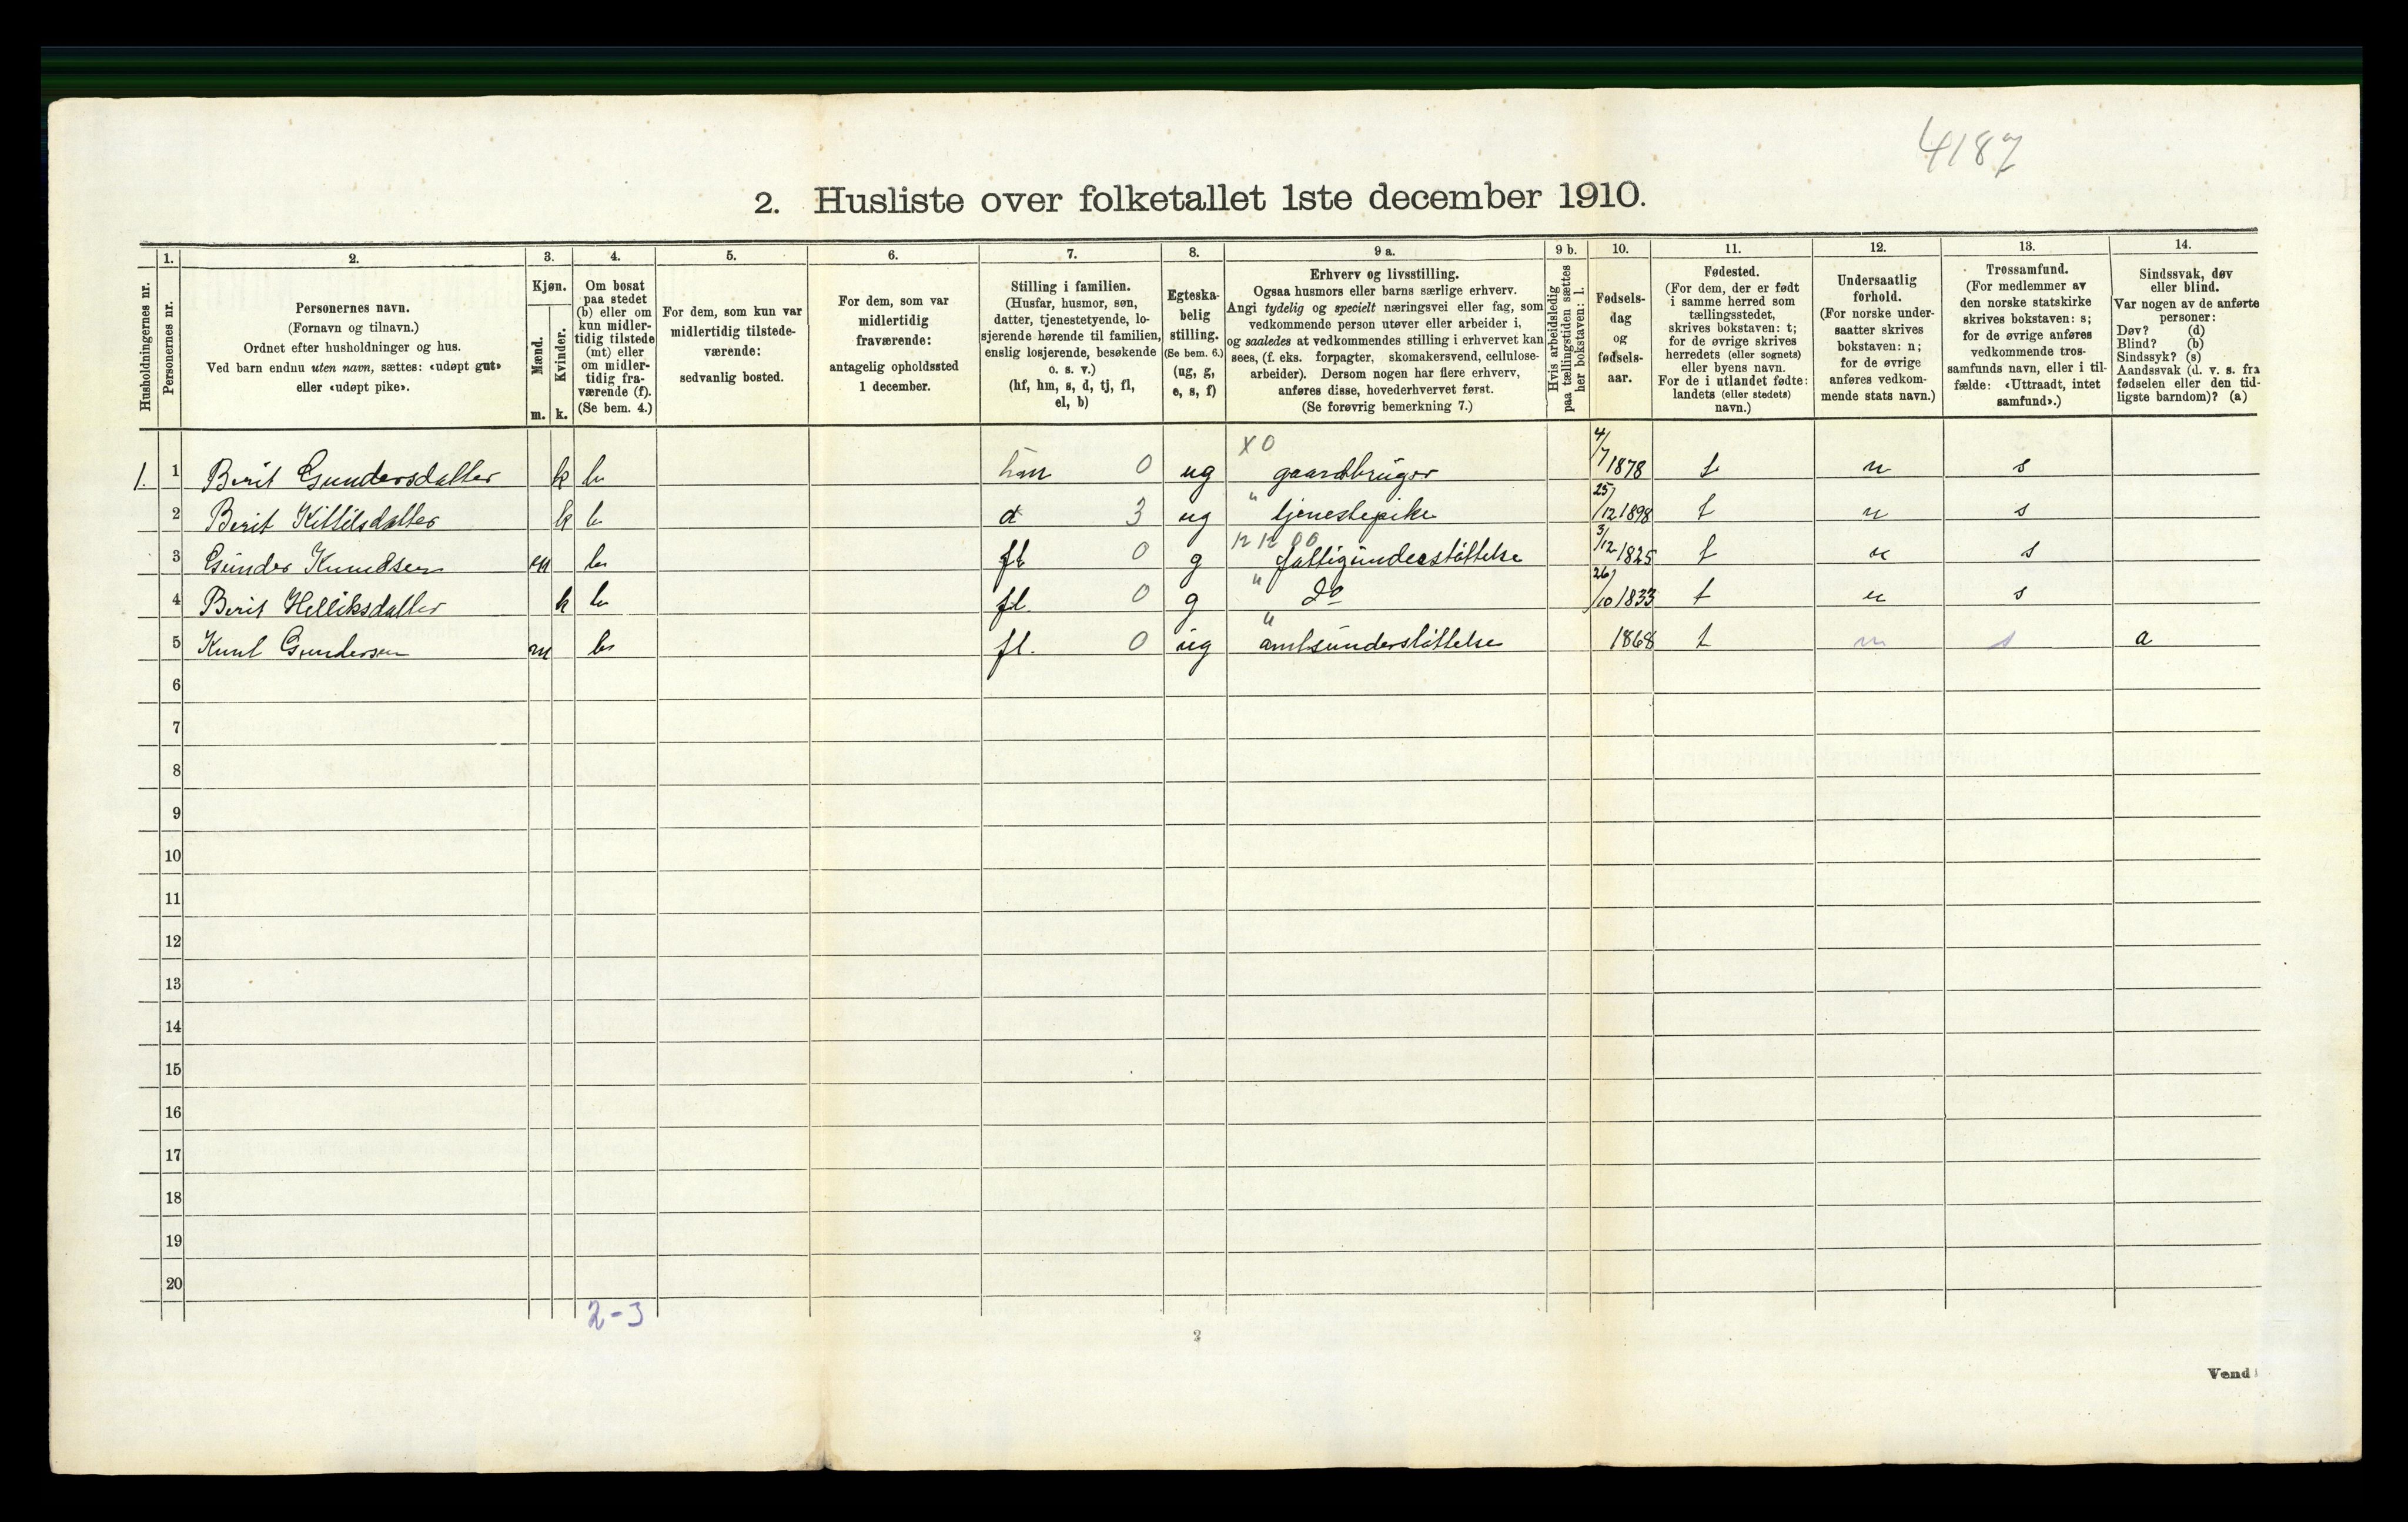 4187
2. Husliste over folketallet 1ste december 1910.
Husholdningernes nr.
1.
Personernes nr.
2.
Personernes navn.
(Fornavn og tilnavn.)
Ordnet efter husholdninger og hus.
Ved barn endnu uten navn, sættes: «udøpt gut»
eller «udøpt pike».
3.
Kjøn.
Mænd.
Kvinder.
m. k.
4.
Om bosat
paa stedet
(b) eller om
kun midler-
tidig tilstede
(mt) eller
om midler-
tidig fra-
værende (f).
(Se bem. 4.)
5.
For dem, som kun var
midlertidig tilstede-
værende:
sedvanlig bosted.
6.
For dem, som var
midlertidig
fraværende:
antagelig opholdssted
1 december.
7.
Stilling i familien.
(Husfar, husmor, søn,
datter, tjenestetyende, lo-
sjerende hørende til familien,
enslig losjerende, besøkende
o. s. v.)
(hf, hm, s, d, tj, fl,
el, b)
8.
Egteska-
belig
stilling.
(Se bem. 6.)
(ug, g,
e, s, f)
9 a.
Erhverv og livsstilling.
Ogsaa husmors eller barns særlige erhverv.
Angi tydelig og specielt næringsvei eller fag, som
vedkommende person utøver eller arbeider i,
og saaledes at vedkommendes stilling i erhvervet kan
sees, (f. eks. forpagter, skomakersvend, cellulose-
arbeider). Dersom nogen har flere erhverv,
anføres disse, hovederhvervet først.
(Se forøvrig bemerkning 7.)
9 b.
Hvis arbeidsledig
paa tællingstiden sættes
her bokstaven: l.
10.
Fødsels-
dag
og
fødsels-
aar.
11.
Fødested.
(For dem, der er født
i samme herred som
tællingsstedet,
skrives bokstaven: t;
for de øvrige skrives
herredets (eller sognets)
eller byens navn.
For de i utlandet fødte:
landets (eller stedets)
navn.)
12.
Undersaatlig
forhold.
(For norske under-
saatter skrives
bokstaven: n;
for de øvrige
anføres vedkom-
mende stats navn.)
13.
Trossamfund.
(For medlemmer av
den norske statskirke
skrives bokstaven: s;
for de øvrige anføres
vedkommende tros-
samfunds navn, eller i til-
fælde: «Uttraadt, intet
samfund».)
14.
Sindssvak, døv
eller blind.
Var nogen av de anførte
personer:
Døv? (d)
Blind? (b)
Sindssyk? (s)
Aandssvak (d. v. s. fra
fødselen eller den tid-
ligste barndom)? (a)
X 0
1. 1 Berit Gundersdatter k b hm 0 ug gaardbruger 4/7 1878 t n s
2 Berit Kittilsdatter k b d 3 ug " tjenestepike 25/12 1898 t n s
3 Gunder Knudsen m b fl 0 g fattigunderstøttelse 3/12 1825 t n s
4 Berit Helliksdatter k b fl. 0 g " do 26/10 1833 t n s
5 Knut Gundersen m b fl. 0 ug " amtsunderstøttelse 1868 t n s a
6
7
8
9
10
11
12
13
14
15
16
17
18
19
20
2-3
2
Vend